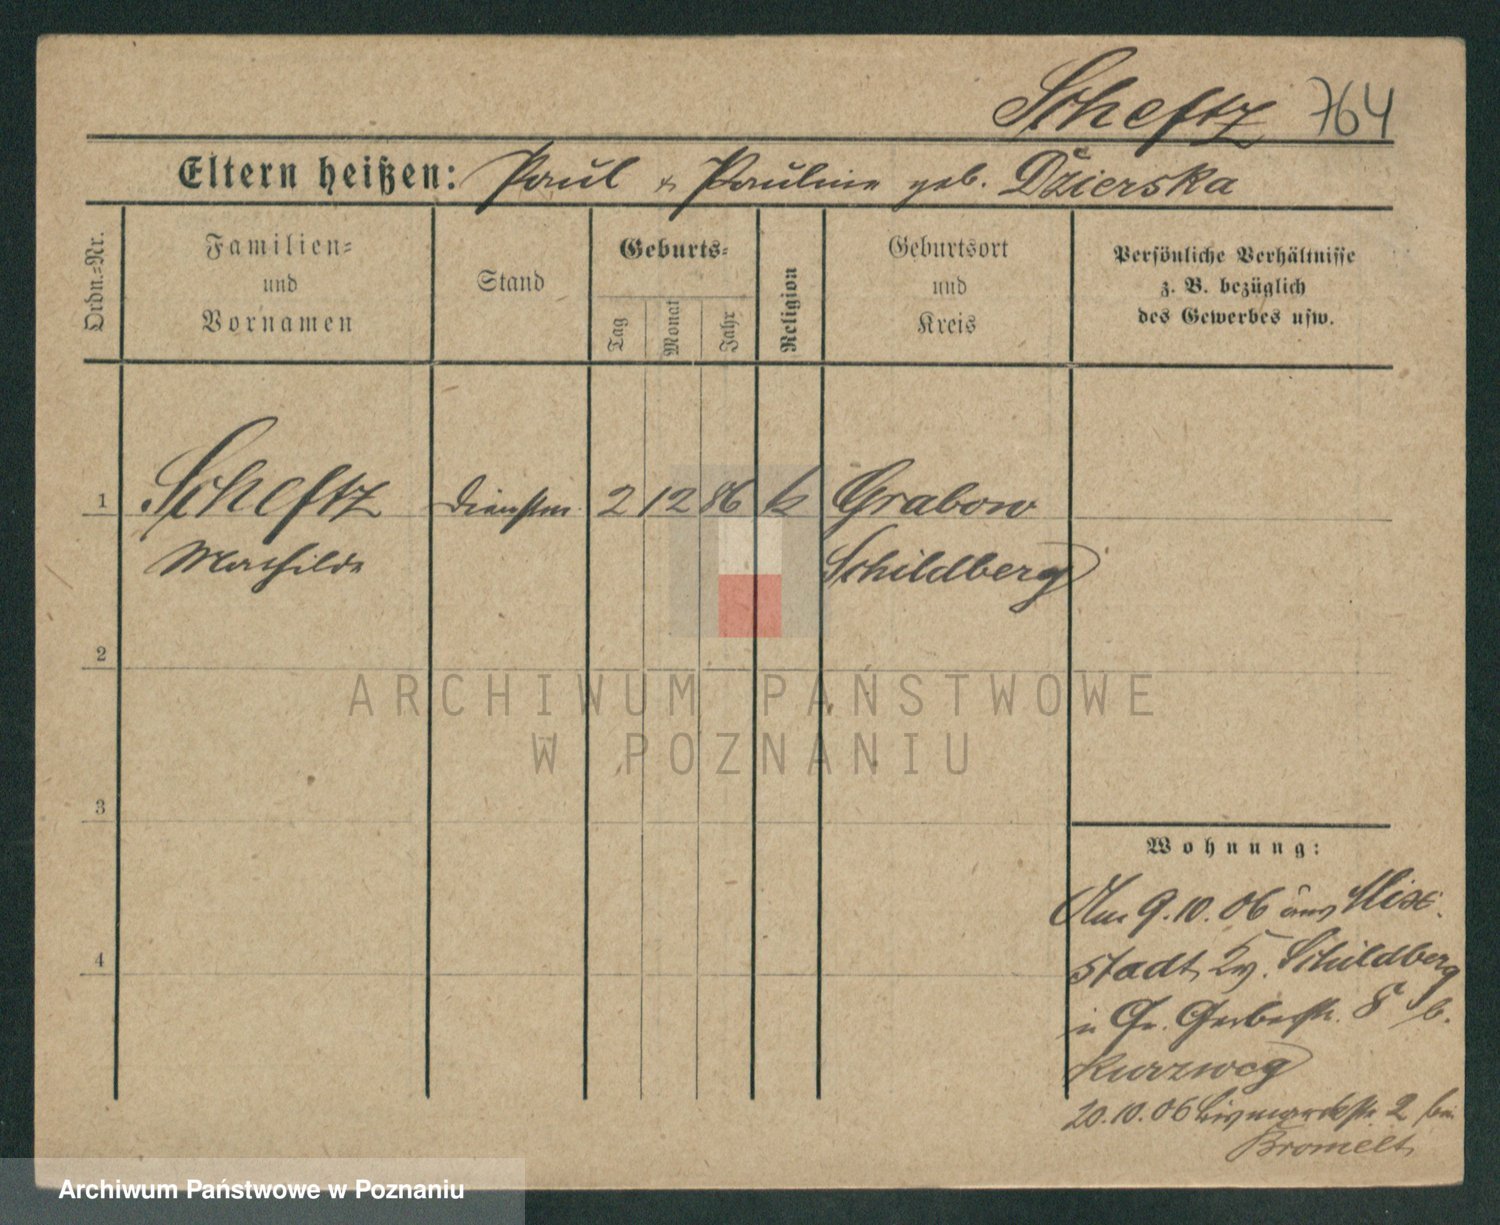 Scheftz 764
Eltern heißen: Paul & Pauline geb. Dzierska
Ordn.=Nr.
Familien=
und
Vornamen
Stand
Geburts=
Tag
Monat
Jahr
Religion
Geburtsort
und
Kreis
Persönliche Verhältnisse
z. B. bezüglich
des Gewerbes usw.
1 Scheftz Dienstm. 2 12 86 k Grabow
Mathilde Schildberg
2
ARCHIWUM PAŃSTWOWE
W POZNANIU
3
4
Wohnung:
Am 9.10.06 aus Mix-
stadt, Kr. Schildberg
in Gr. Gerberstr. 8 b.
Kurzweg
20.10.06 Bismarckstr. 2 bei
Bromelt
Archiwum Państwowe w Poznaniu